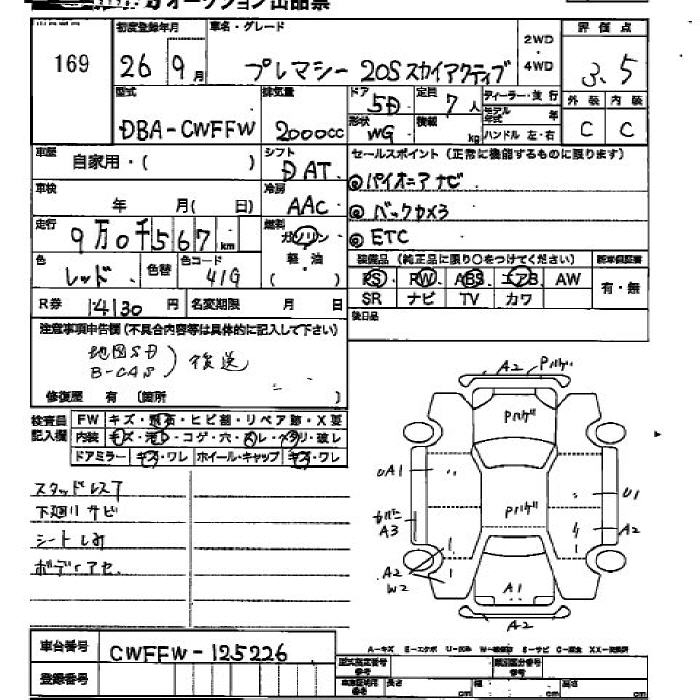 オークション出品票
169
初度登録年月
26 9月
車名・グレード
プレマシー 20S スカイアクティブ
2WD
・
4WD
評価点
3.5
外装 内装
C C
型式
DBA-CWFFW
排気量
2000cc
ドア
5D
定員
7人
形状
WG
積載
kg
ディーラー・並行
モデル年式 年
ハンドル 左・右
車歴
自家用・( )
シフト
DAT
セールスポイント (正常に機能するものに限ります)
◎パイオニアナビ
◎バックカメラ
◎ETC
車検
年 月( 日)
冷房
AAC
走行
9万0千567km
燃料
ガソリン
軽・油
( )
色
レッド
色替
色コード
41G
装備品 (純正品に限り○をつけてください)
PS PW ABS エアB AW
SR ナビ TV カワ
新車保証書
有・無
R券 14130円
名変期限 月 日
後日品
注意事項申告欄 (不具合内容等は具体的に記入して下さい)
地図SD
B-CAS
後送
修復歴 有 (箇所 )
検査員
記入欄
FW キズ・飛石・ヒビ割・リペア跡・X要
内装 キズ・汚れ・コゲ・穴・スレ・ヘタリ・破レ
ドアミラー キズ・ワレ ホイール・キャップ キズ・ワレ
スタッドレスT
下廻りサビ
シートしみ
ボディアセ
A2 Pハゲ
Pハゲ
UA1
Pハゲ
U1
A3
A2
A2
W2
A1
A2
車台番号
CWFFW-125226
登録番号
A-キズ E-エクボ U-凹み S-サビ
型式指定番号
類別区分番号
長さ cm 幅 cm 高さ cm